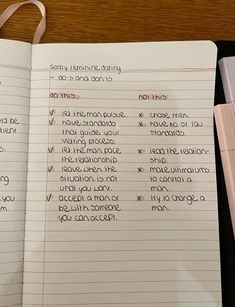 sooly feminine dating
- do's and don'ts
do this
not this
✓ let the man pursue.
✓ have standards
that guide your
vetting process.
✓ let the man pace
the relationship
✓ leave when the
situation is not
what you want.
✓ accept a man or
be with someone
you can accept.
x chase men.
x have no or low
standards.
x lead the relation-
ship.
x make ultimatums
to control a
man.
x try to change a
man.